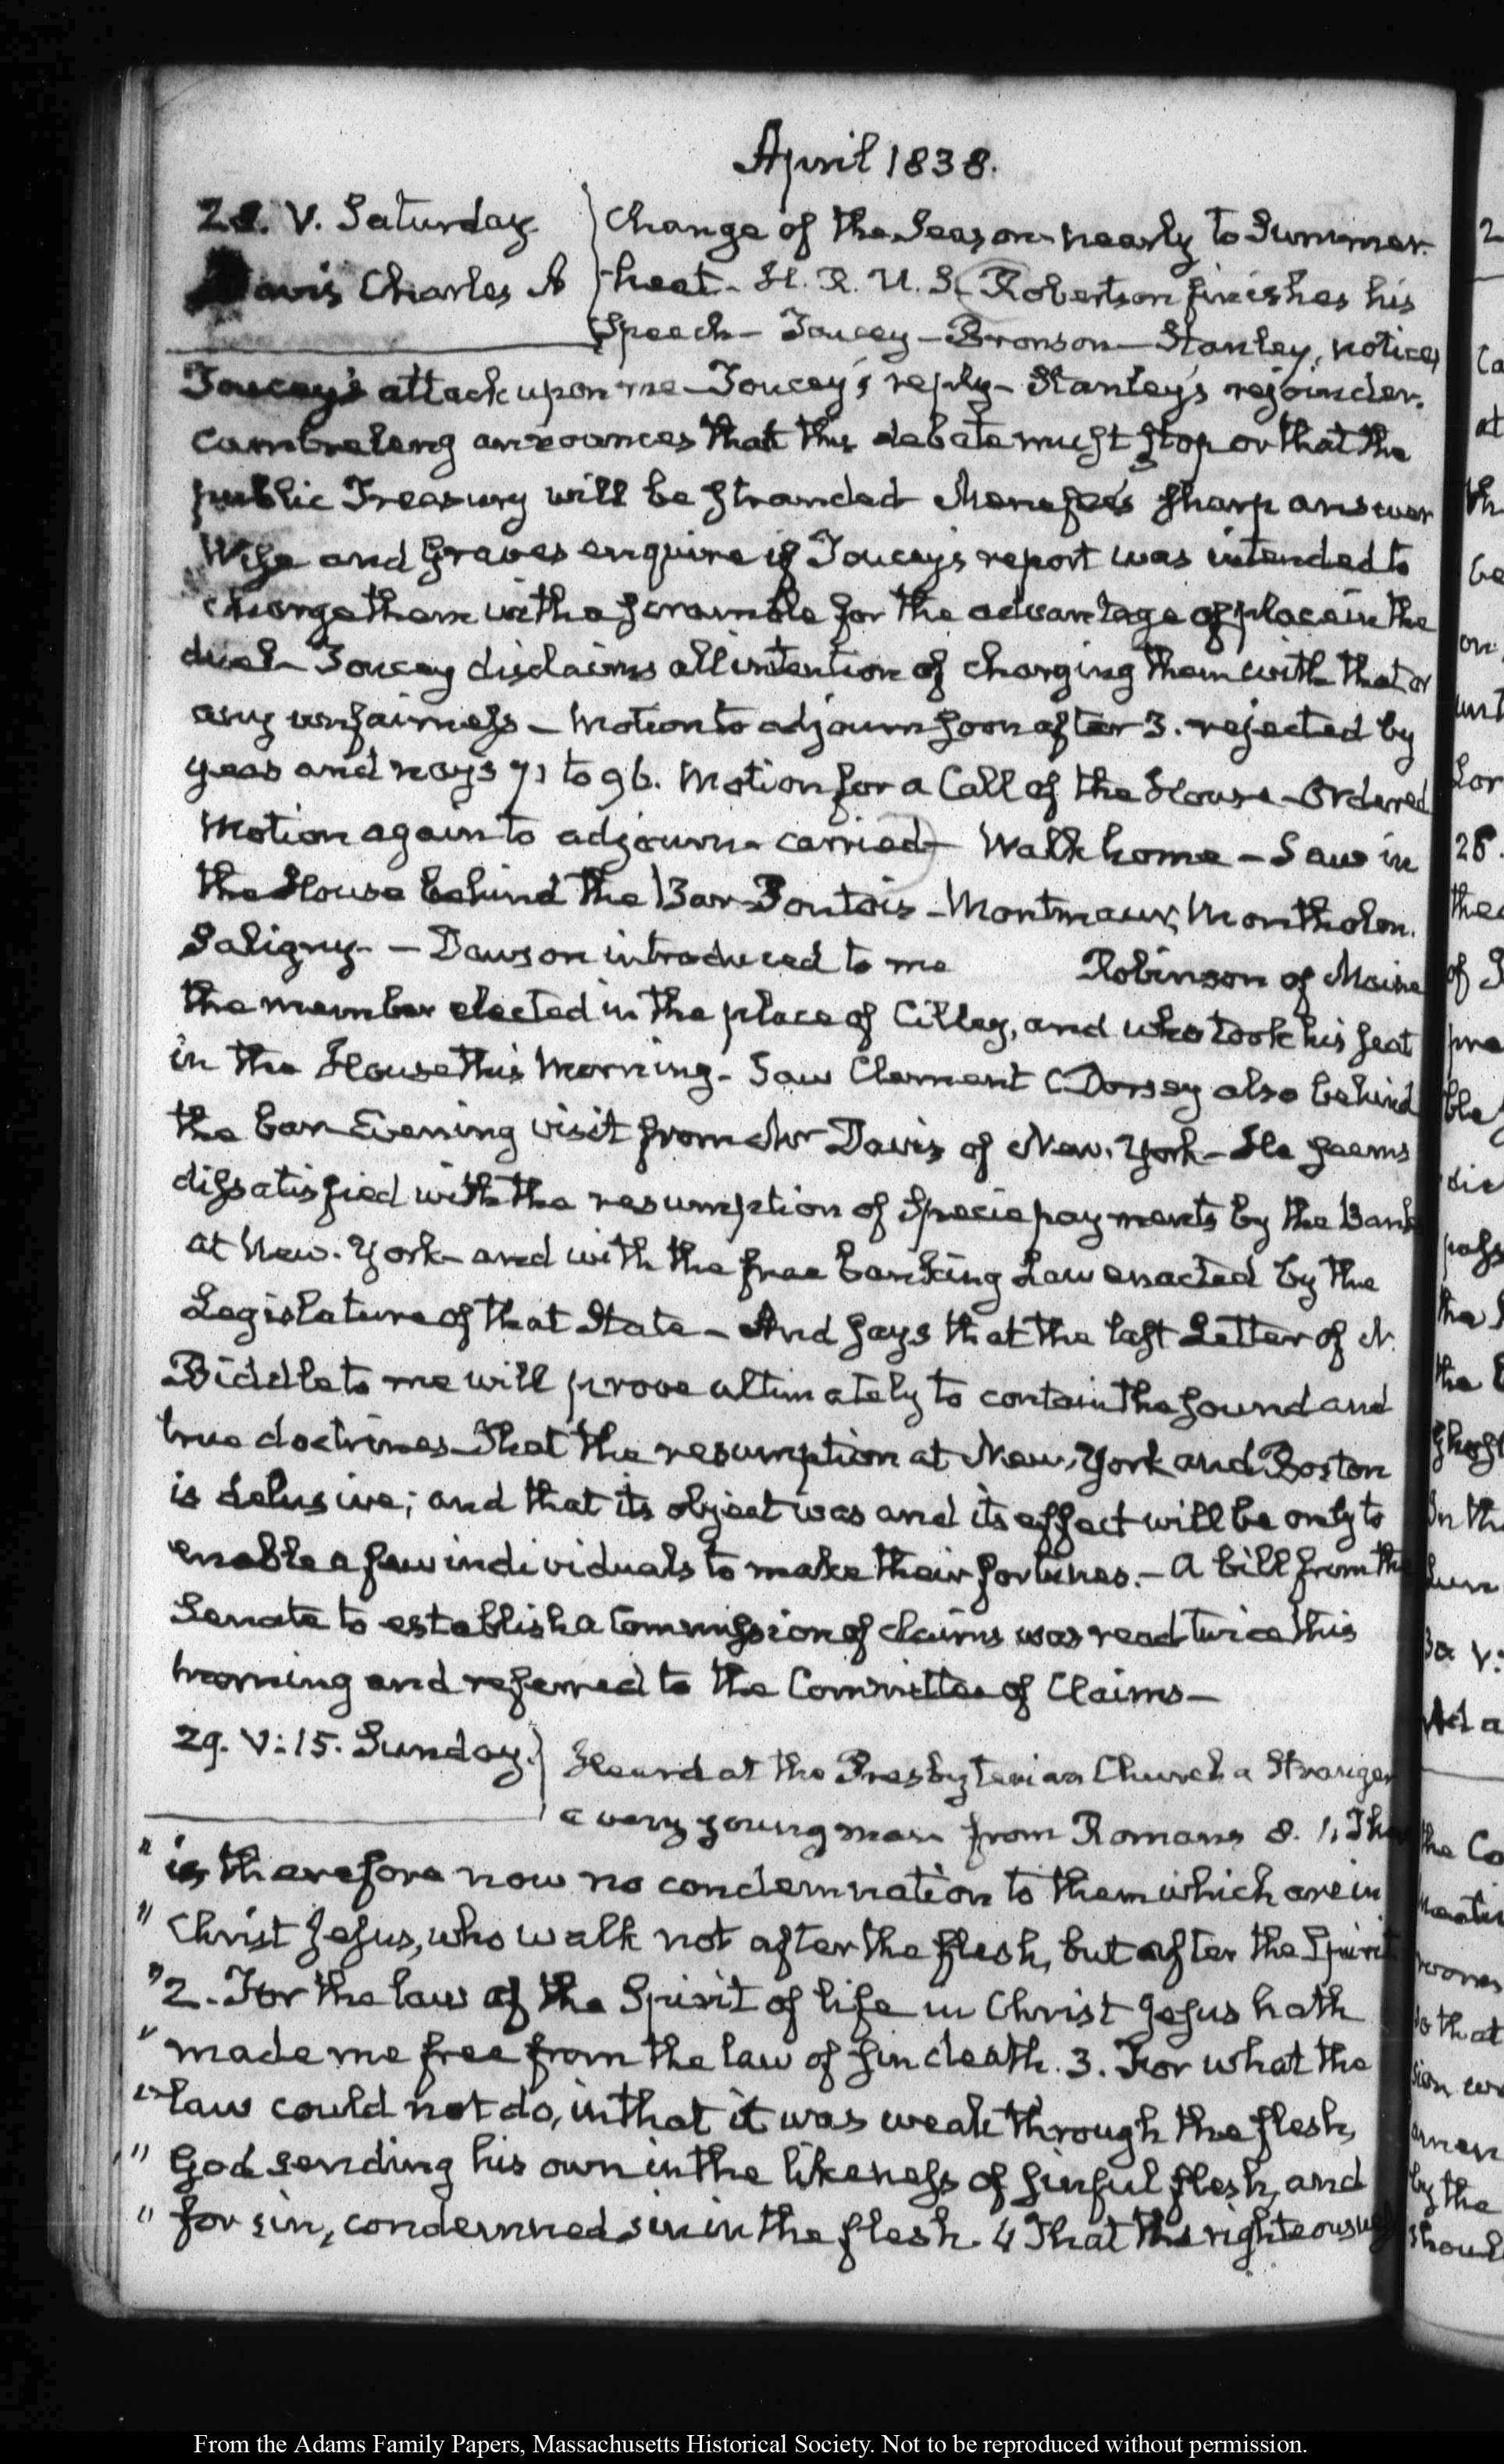 April 1838.
28. V. Saturday
Davis Charles A
Change of the Season nearly to Summer
heat. H. R. U. S. Robertson finishes his
Speech — Toucey — Bronson — Stanley, notices
Toucey's attack upon me — Toucey's reply — Stanley's rejoinder.
Cambreleng announces that this debate must stop or that the
public Treasury will be stranded Menefee's sharp answer
Wise and Graves enquire if Toucey's report was intended to
charge them with a scramble for the advantage of place in the
duel — Toucey disclaims all intention of charging them with that or
any unfairness — Motion to adjourn soon after 3. rejected by
yeas and nays 71 to 96. Motion for a Call of the House — Ordered
Motion again to adjourn — carried — Walk home — Saw in
the House behind the Bar Pontois — Montmaur, Montholon.
Saligny. — Dawson introduced to me Robinson of Maine
the member elected in the place of Cilley, and who took his seat
in the House this Morning. Saw Clement Dorsey also behind
the bar Evening visit from Mr Davis of New-York — He seems
dissatisfied with the resumption of Specie payments by the Banks
at New-York — and with the free banking Law enacted by the
Legislature of that State — And says that the last Letter of N.
Biddle to me will prove ultimately to contain the sound and
true doctrines — That the resumption at New-York and Boston
is delusive; and that its object was and its effect will be only to
enable a few individuals to make their fortunes. — A bill from the
Senate to establish a Commission of claims was read twice this
morning and referred to the Committee of Claims —
29. V:15. Sunday.
Heard at the Presbyterian Church a Stranger
a very young man from Romans 8. 1. There
" is therefore now no condemnation to them which are in
" Christ Jesus, who walk not after the flesh, but after the Spirit
" 2. For the law of the Spirit of life in Christ Jesus hath
" made me free from the law of sin death. 3. For what the
" law could not do, in that it was weak through the flesh,
" God sending his own in the likeness of sinful flesh, and
" for sin, condemned sin in the flesh. 4 That the righteousness
From the Adams Family Papers, Massachusetts Historical Society. Not to be reproduced without permission.